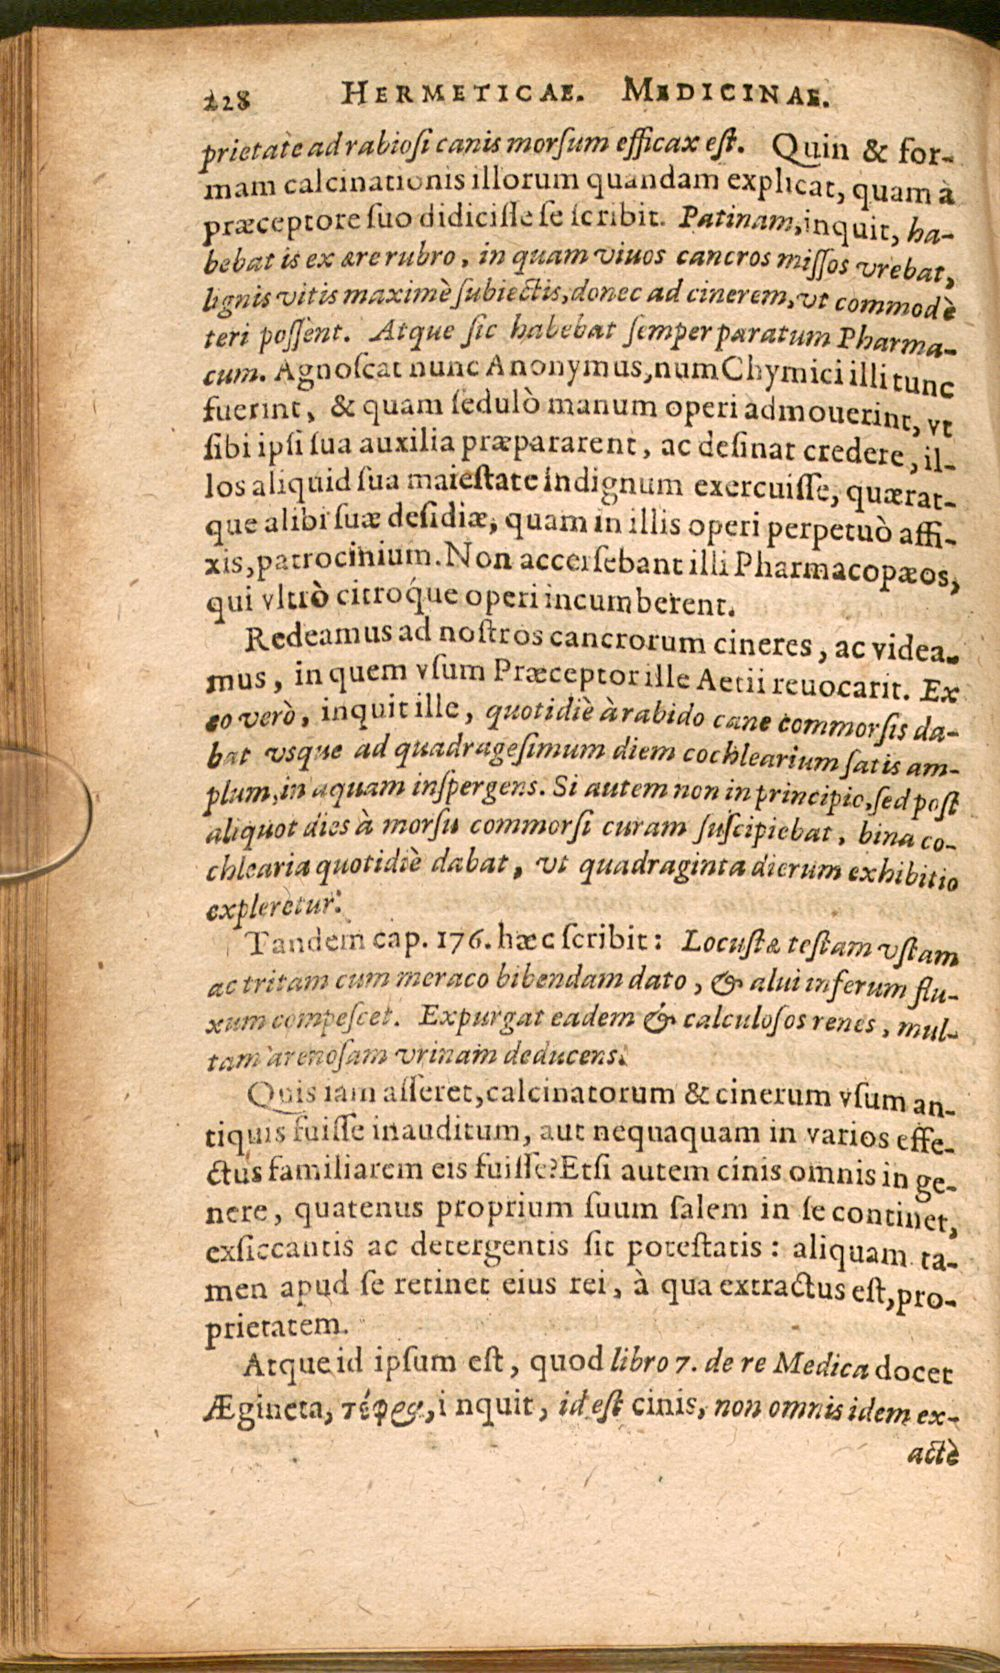 228 HERMETICAE. MEDICINAE.
prietate ad rabiosi canis morsum efficax est. Quin & for-
mam calcinationis illorum quandam explicat, quam à
præceptore suo didicisse se scribit. Patinam, inquit, ha-
bebat is ex ære rubro, in quam viuos cancros missos vrebat,
lignis vitis maximè subiectis, donec ad cinerem, vt commodè
teri possent. Atque sic habebat semper paratum Pharma-
cum. Agnoscat nunc Anonymus, num Chymici illi tunc
fuerint, & quam sedulò manum operi admouerint, vt
sibi ipsi sua auxilia præpararent, ac desinat credere, il-
los aliquid sua maiestate indignum exercuisse, quærat-
que alibi suæ desidiæ, quam in illis operi perpetuò affi-
xis, patrocinium. Non accersebant illi Pharmacopæos,
qui vltrò citróque operi incumberent.
Redeamus ad nostros cancrorum cineres, ac videa-
mus, in quem vsum Præceptor ille Aetii reuocarit. Ex
eo verò, inquit ille, quotidiè à rabido cane commorsis da-
bat vsque ad quadragesimum diem cochlearium satis am-
plum, in aquam inspergens. Si autem non in principio, sed post
aliquot dies à morsu commorsi curam suscipiebat, bina co-
chlearia quotidiè dabat, vt quadraginta dierum exhibitio
expleretur.
Tandem cap. 176. hæc scribit: Locustæ testam vstam
ac tritam cum meraco bibendam dato, & alui inferum flu-
xum compescet. Expurgat eadem & calculosos renes, mul-
tam arenosam vrinam deducens.
Quis iam asseret, calcinatorum & cinerum vsum an-
tiquis fuisse inauditum, aut nequaquam in varios effe-
ctus familiarem eis fuisse? Etsi autem cinis omnis in ge-
nere, quatenus proprium suum salem in se continet,
exsiccantis ac detergentis sit potestatis: aliquam ta-
men apud se retinet eius rei, à qua extractus est, pro-
prietatem.
Atque id ipsum est, quod libro 7. de re Medica docet
Ægineta, τέφρα, inquit, id est cinis, non omnis idem ex-
actè